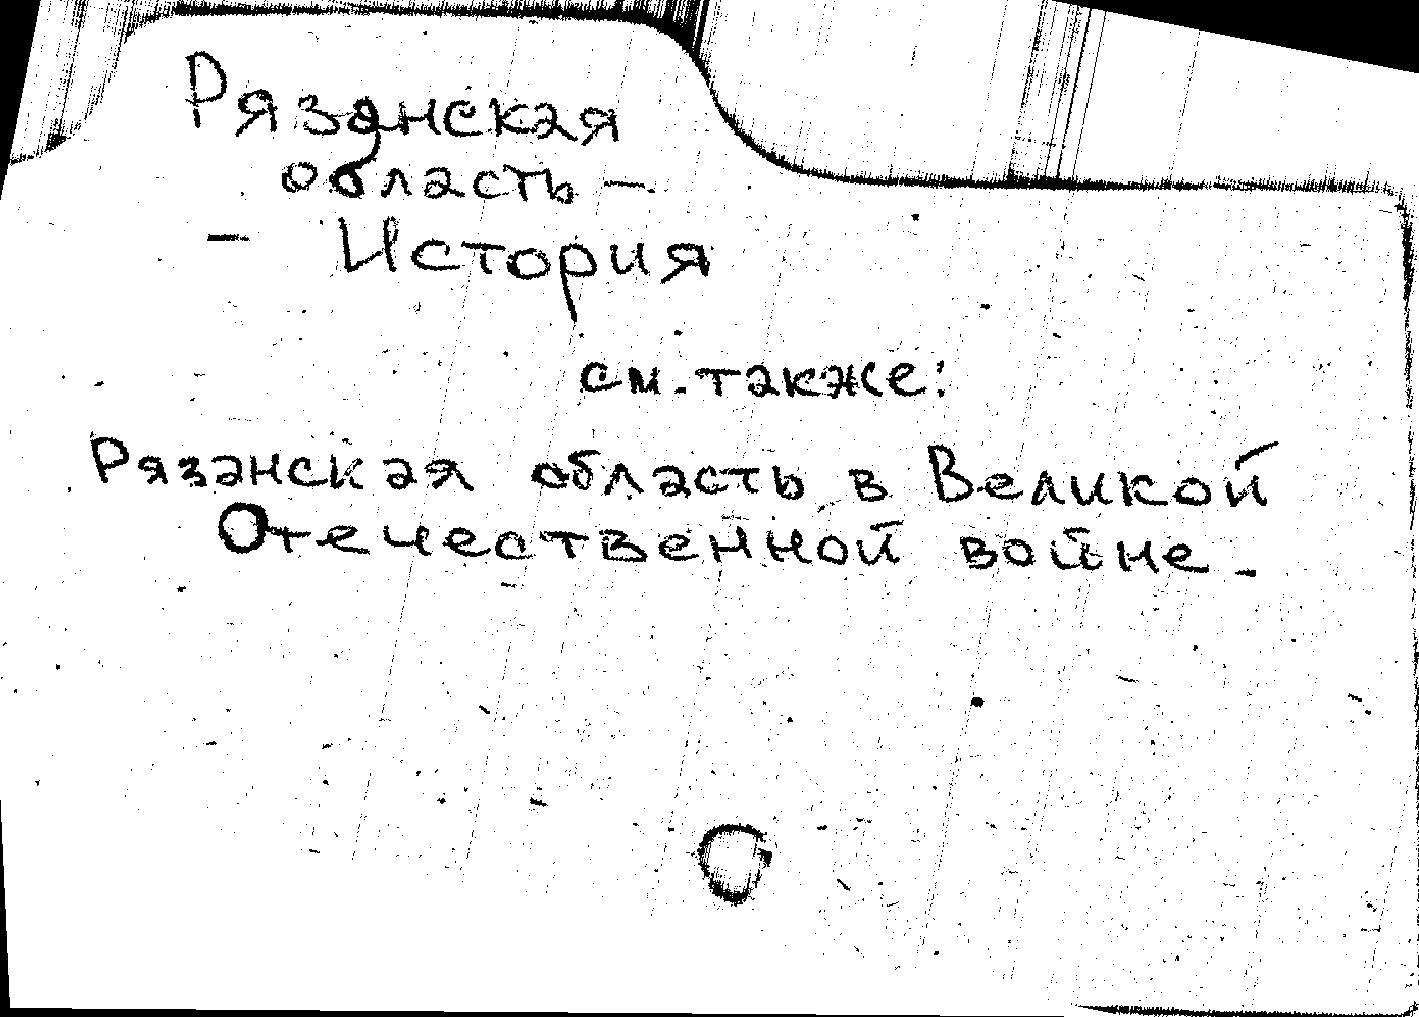 Рязанская
область –
– История
см. также:
Рязанская область в Великой
Отечественной войне.